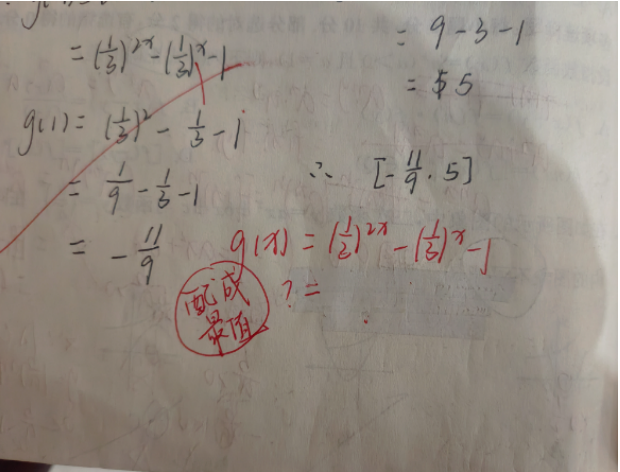 = (1/3)^{2x} - (1/3)^x - 1
g(1) = (1/3)^2 - 1/3 - 1
= 1/9 - 1/3 - 1
= - 11/9
= 9 - 3 - 1
= 5
∴ [-11/9, 5]
g(x) = (1/3)^{2x} - (1/3)^x - 1
? =
配成
最值